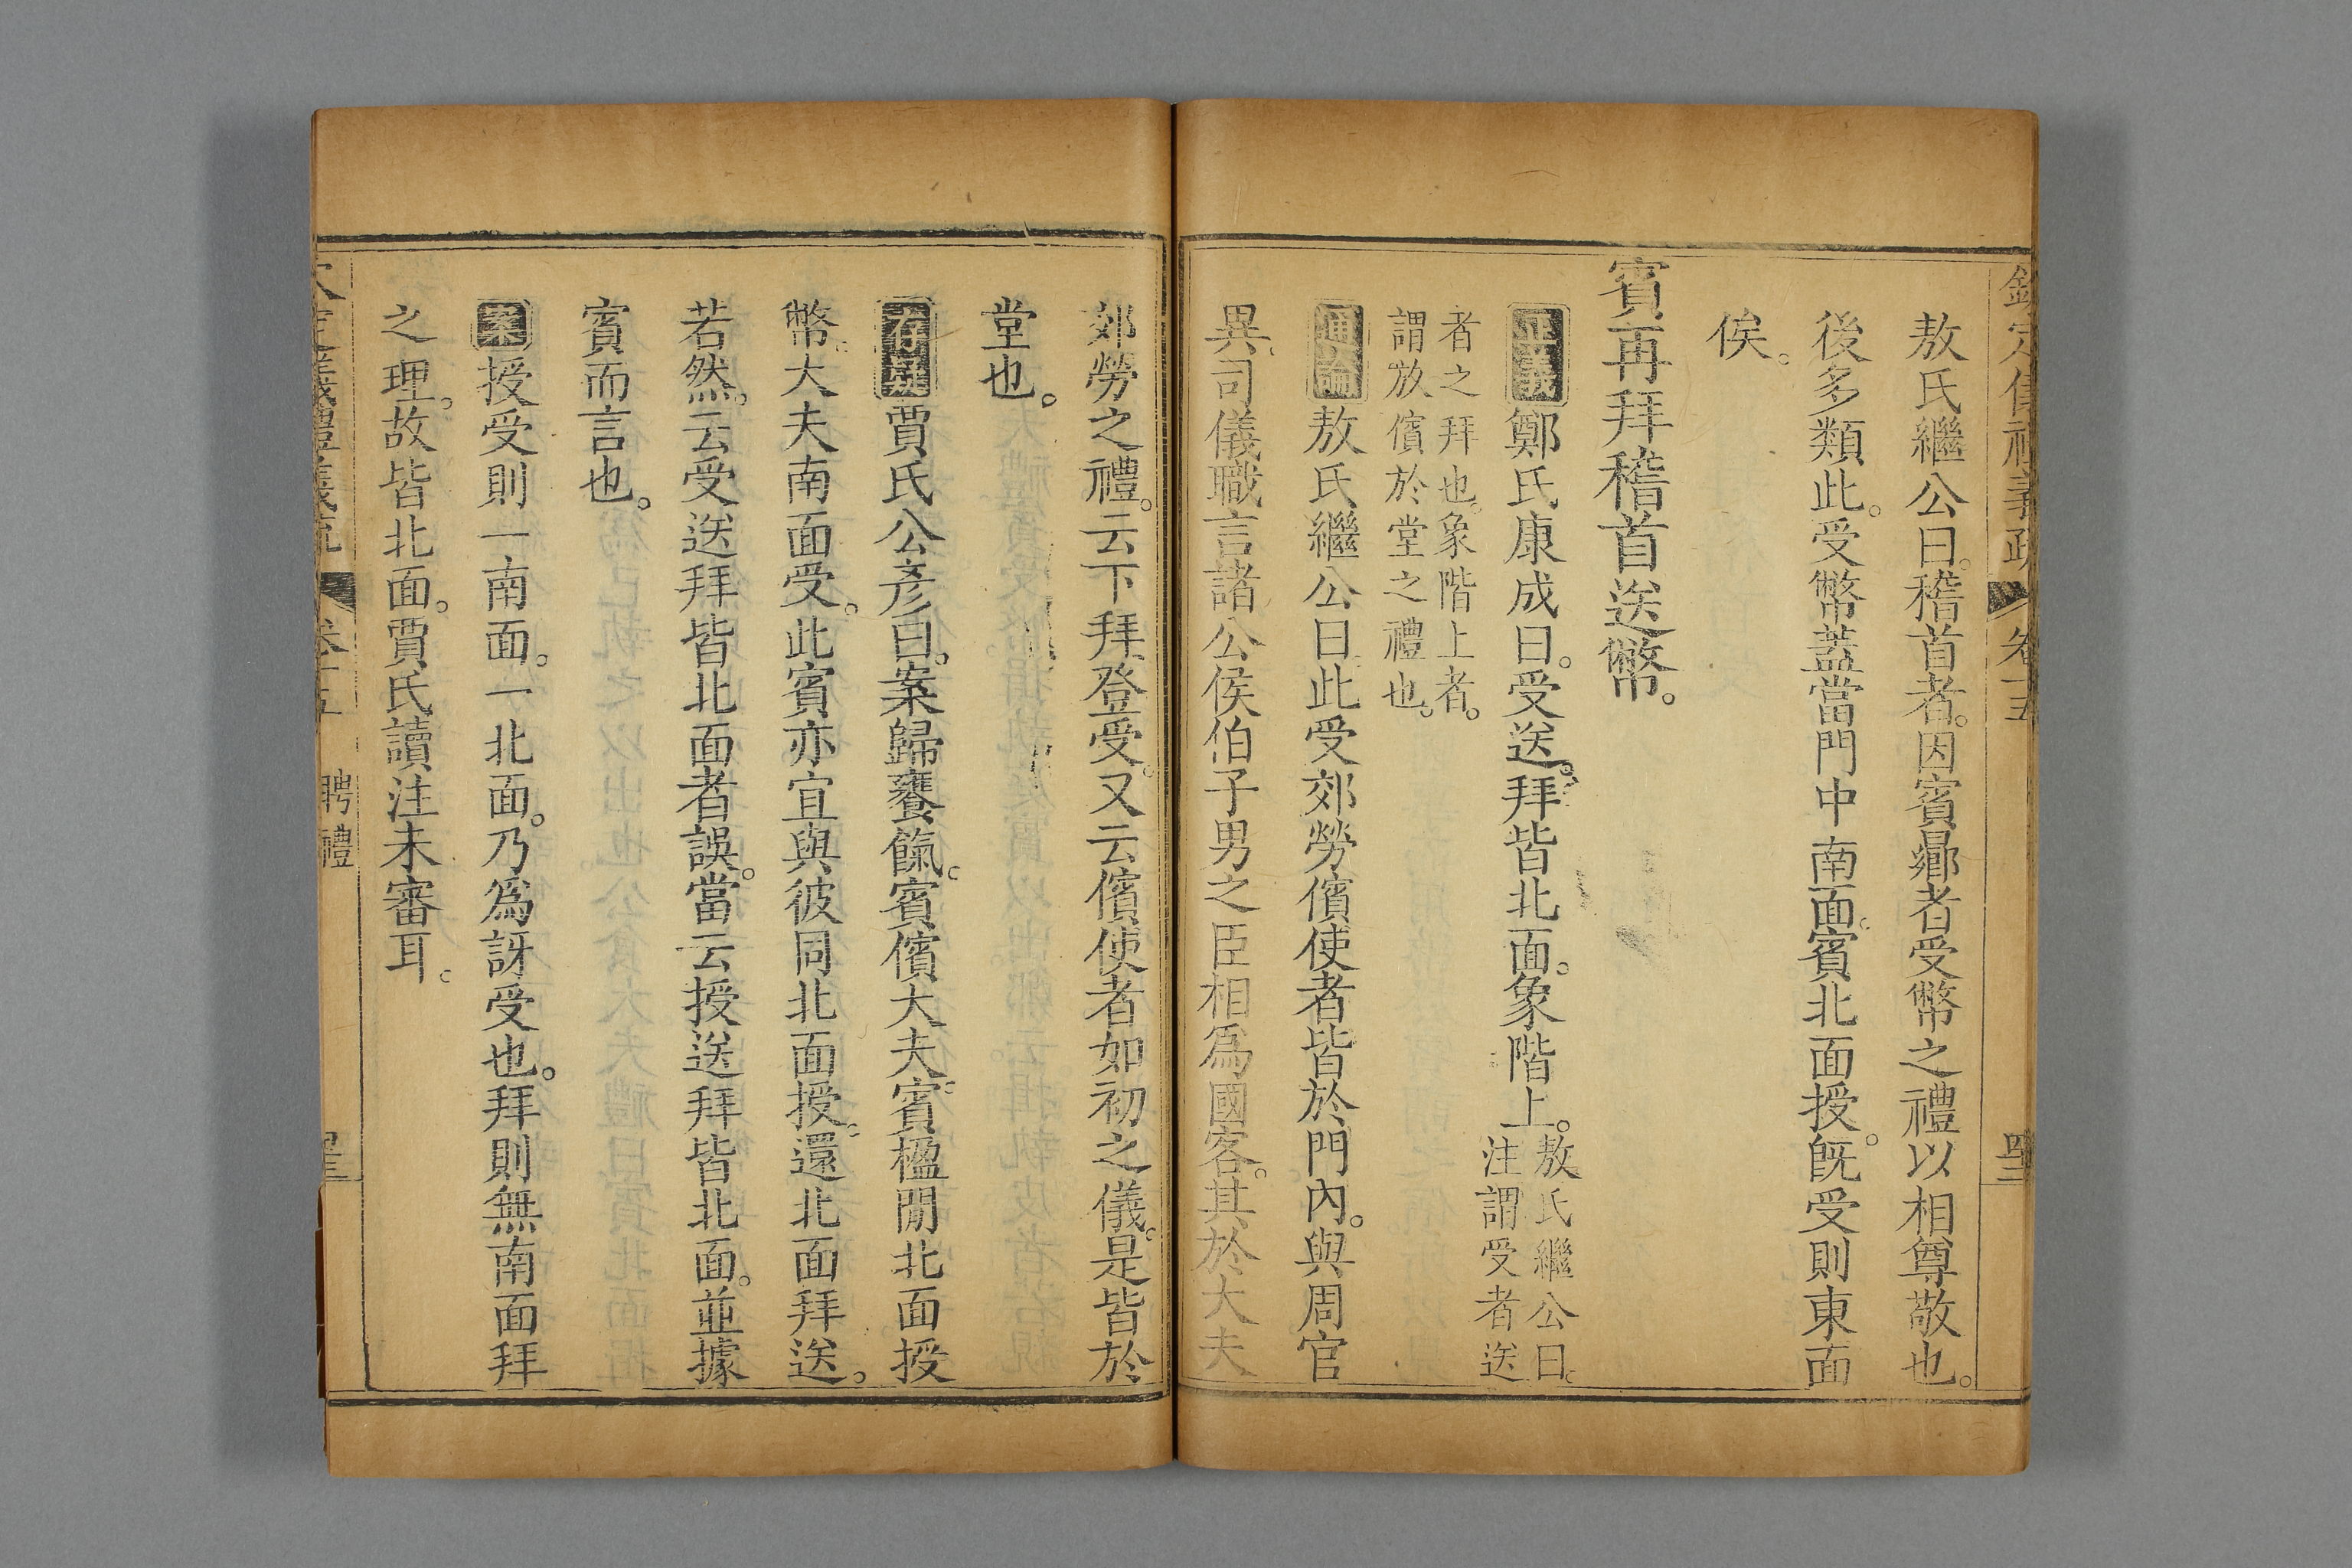 欽定儀禮義疏 卷十五
敖氏繼公曰。稽首者。因賓鄉者受幣之禮以相尊敬也。
後多類此。受幣蓋當門中南面。賓北面授。旣受則東面
俟。
賓再拜稽首送幣。
正義鄭氏康成曰。受送。拜皆北面。象階上。敖氏繼公曰。
注謂受者送
者之拜也。象階上者。
謂放儐於堂之禮也。
通論敖氏繼公曰此受郊勞儐使者皆於門內。與周官
異。司儀職言諸公侯伯子男之臣相爲國客。其於大夫
郊勞之禮。云下拜登受。又云儐使者如初之儀。是皆於
堂也。
存疑賈氏公彥曰。案歸饔餼。賓儐大夫。賓楹閒北面授
幣。大夫南面受。此賓亦宜與彼同北面授。還北面拜送。
若然。云受送拜皆北面者誤。當云授送拜皆北面。並據
賓而言也。
案授受則一南面。一北面。乃爲訝受也。拜則無南面拜
之理。故皆北面。賈氏讀注未審耳。
欽定儀禮義疏 卷十五 聘禮